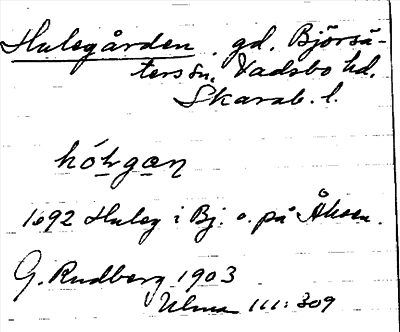 Hulegården. gd. Björsä-
ters sn. Vadsbo hd.
Skarab. l.
1692 Huleg i Bj. o. på
G. Rudberg 1903
Ulma 111:309